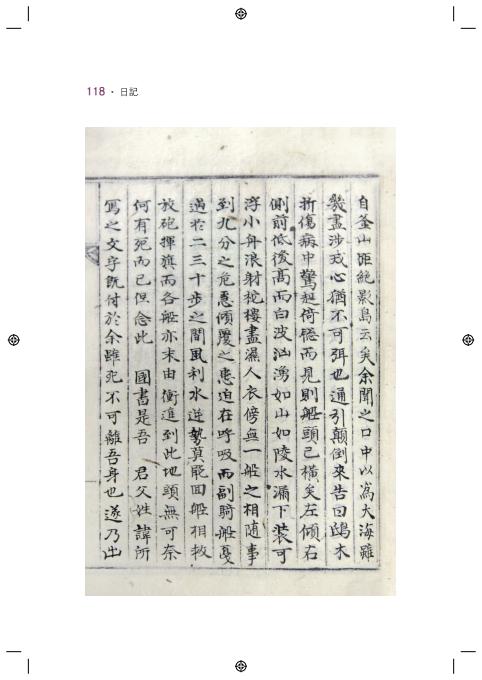 118 · 日記
自釜山距絶影島云矣余聞之口中以爲大海雖
幾盡涉戎心猶不可弭也通引顚倒來告曰鴟木
折傷病中驚起倚聽而見則船頭已橫矣左傾右
側前低後高而白波汹湧如山如陵水漏下裝可
浮小舟浪射柁樓盡濕人衣傍無一船之相隨事
到九分之危急傾覆之患迫在呼吸而副騎船戞
過於二三十步之間風利水逆勢莫能回船相救
放砲揮旗而各船亦末由衝進到此地頭無可奈
何有死而已但念此 國書是吾 君父姓諱所
寫之文字旣付於余雖死不可離吾身也遂乃出